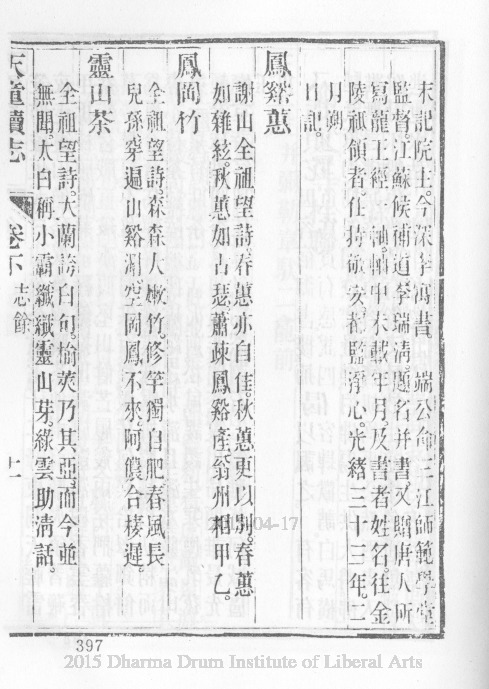 末記院主今深𡵨馮書。 端公命三江師範學堂
監督江蘇候補道李瑞清題名并書又贈唐人所
寫龍王經一軸軸中未載年月及書者姓名往金
陵祗領者住持敬安都監淨心光緒三十三年二
月朔
日記。
鳳谿蕙
謝山全祖望詩春蕙亦自佳。秋蕙更以別。春蕙
如雜絃。秋蕙如古瑟。蕭疎鳳谿產。翁州相甲乙。
鳳岡竹
全祖望詩森森大嫩竹。修竿獨自肥。春風長
兒孫。穿遍山谿湄。空岡鳳不來。阿儂合棲遲。
靈山茶
全祖望詩大蘭誇白句。榆莢乃其亞。而今並
無聞。太白稱小霸。纖纖靈山芽。綠雲助清話。
天童續志 卷下 志餘 十一
397
2015-04-17
2015 Dharma Drum Institute of Liberal Arts